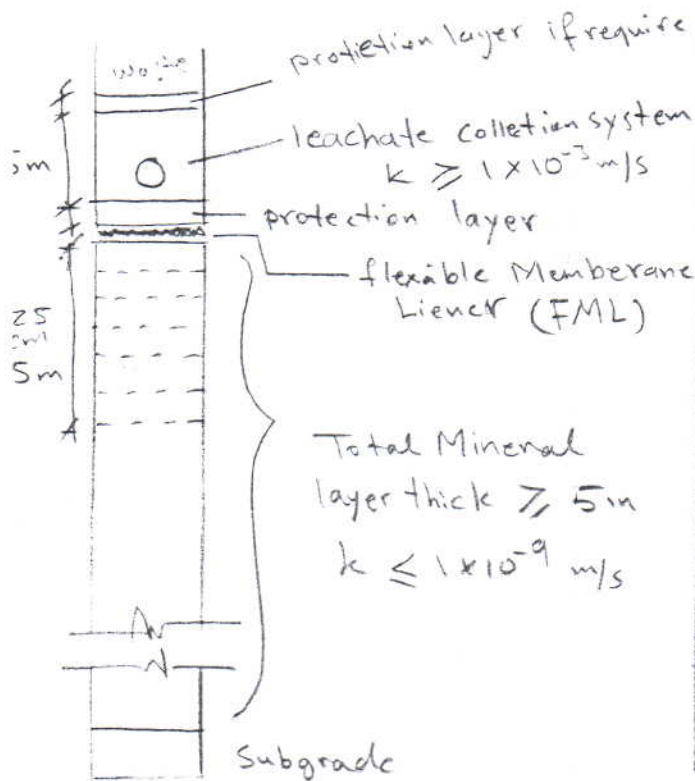 waste
protietion layer if require
leachate colletion system
k ≥ 1 × 10⁻³ m/s
5m
protection layer
flexible Memberane
Liener (FML)
25
5m
Total Mineral
layer thick ≥ 5m
k ≤ 1 × 10⁻⁹ m/s
Subgrade